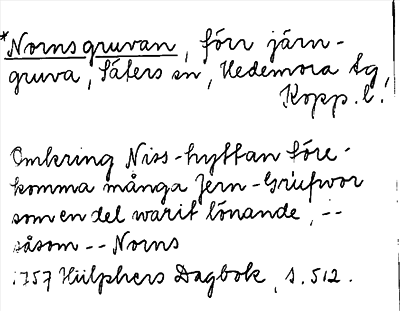 *Nornsgruvan, förr järn-
gruva, Säters sn, Hedemora tg,
Kopp. l.
Omkring Niss-hyttan före-
komma många Jern-Grufvor
som en del warit lönande, --
såsom -- Norns
1757 Hülphers Dagbok, s. 512.